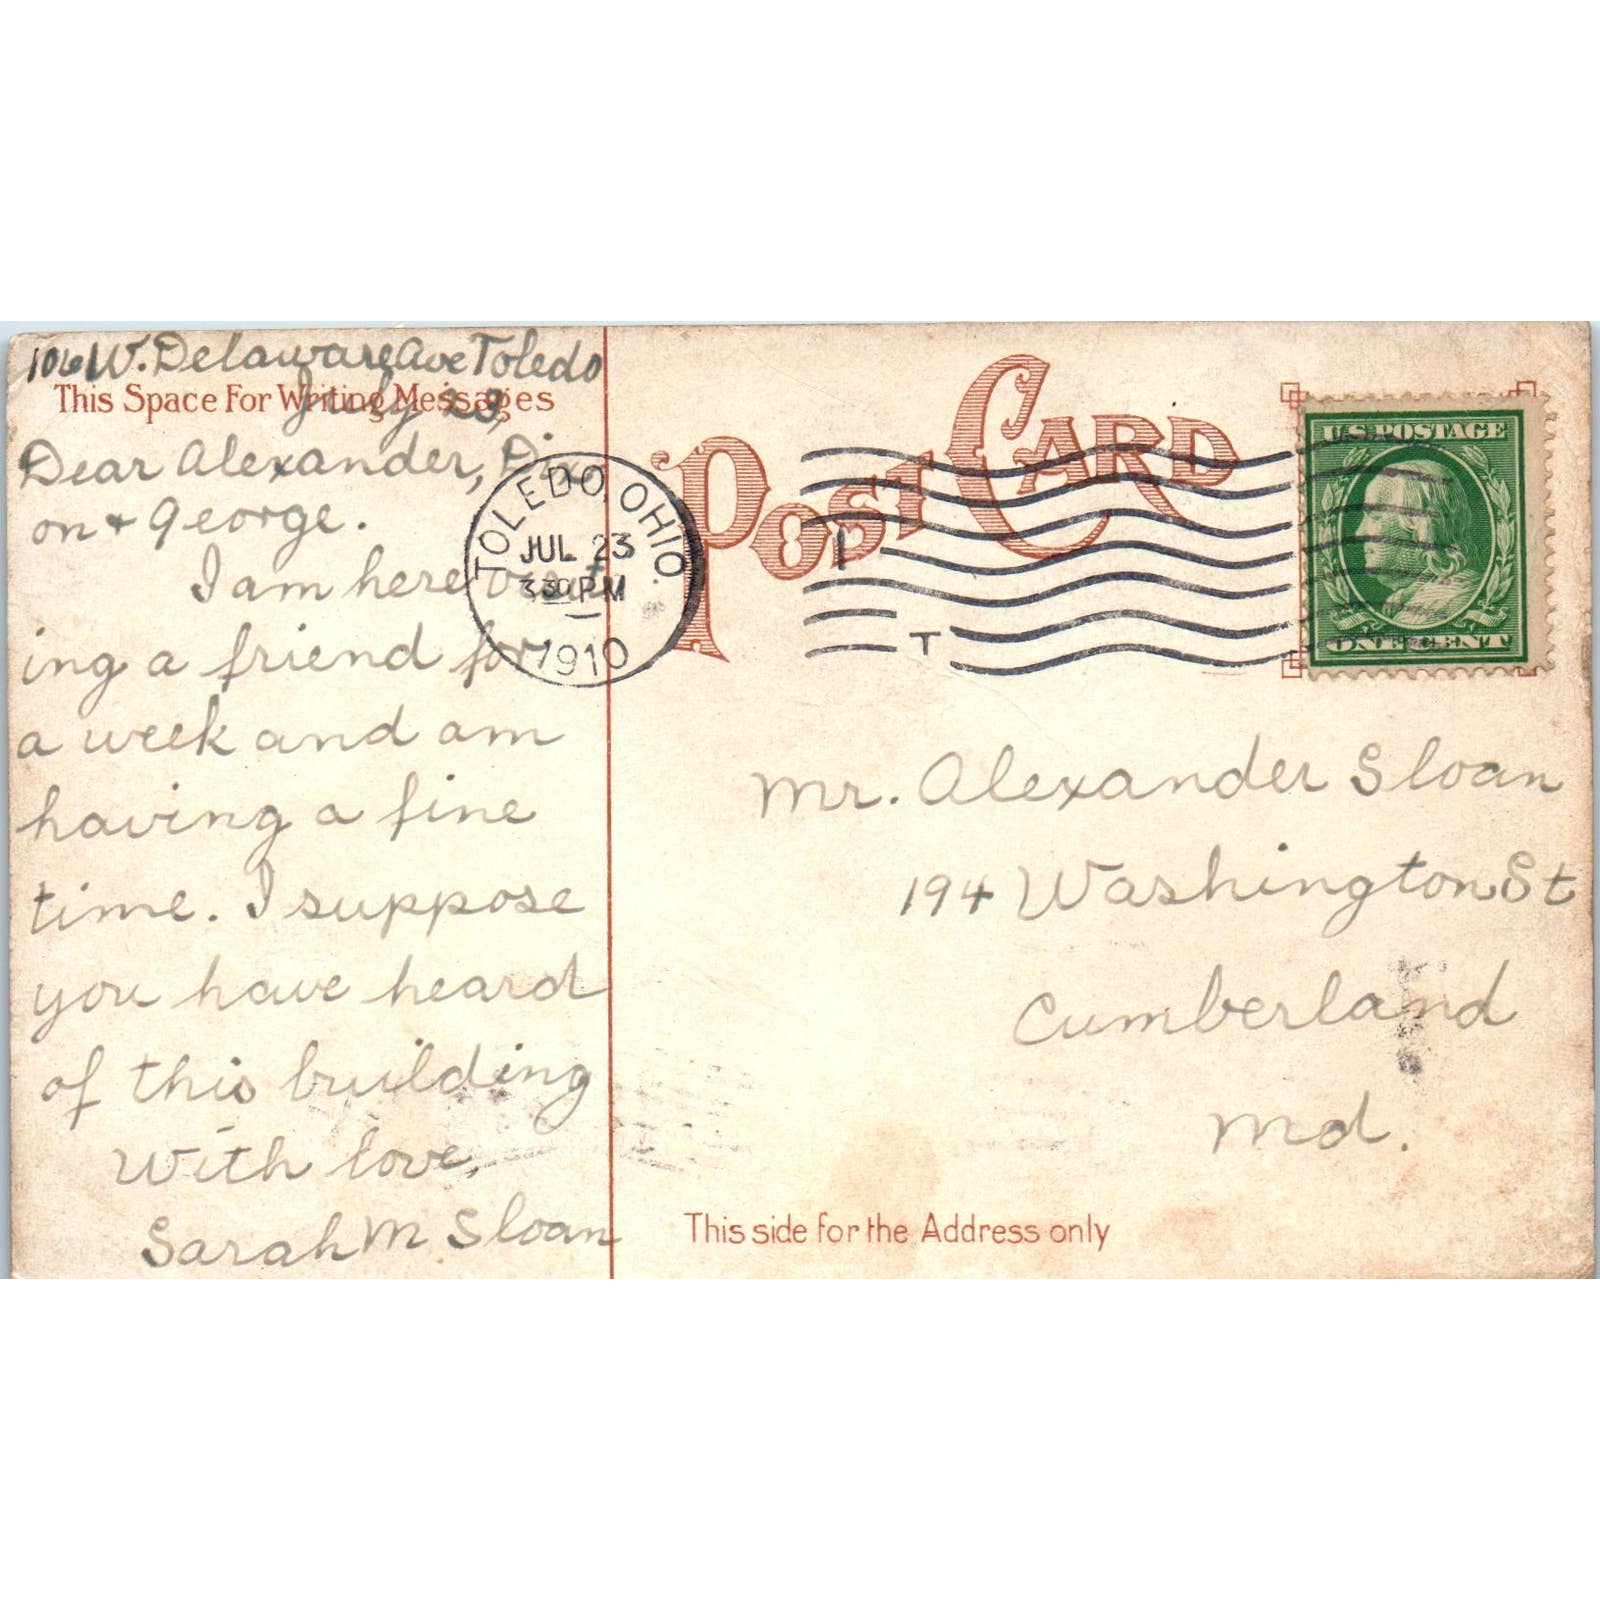 1061 W. Delaware Ave Toledo
This Space For Writing Messages
July 23,
Dear Alexander, Di-
on + George.
I am here
ing a friend for
a week and am
having a fine
time. I suppose
you have heard
of this building
With love,
Sarah M Sloan
TOLEDO, OHIO.
JUL 23
3 30 PM
1910
T
POST CARD
U.S. POSTAGE
ONE CENT
Mr. Alexander Sloan
194 Washington St
Cumberland
Md.
This side for the Address only